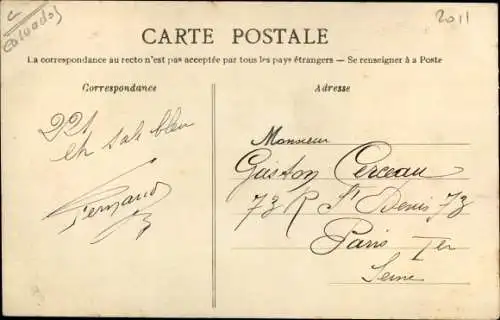 Calvados
2011
CARTE POSTALE
La correspondance au recto n'est pas acceptée par tous les pays étrangers — Se renseigner à a Poste
Correspondance
Adresse
221
en sale bleu
Fernand
Monsieur
Gaston Cerceau
73 R St Denis 73
Paris Ier
Seine